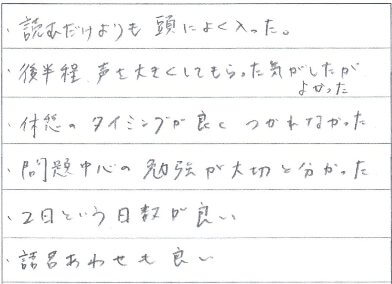 ・読むだけよりも頭によく入った。
・後半程、声を大きくしてもらった気がしたが
よかった
・休憩のタイミングが良く つかれなかった
・問題中心の勉強が大切と分かった
・2日という日数が良い
・語呂あわせも良い